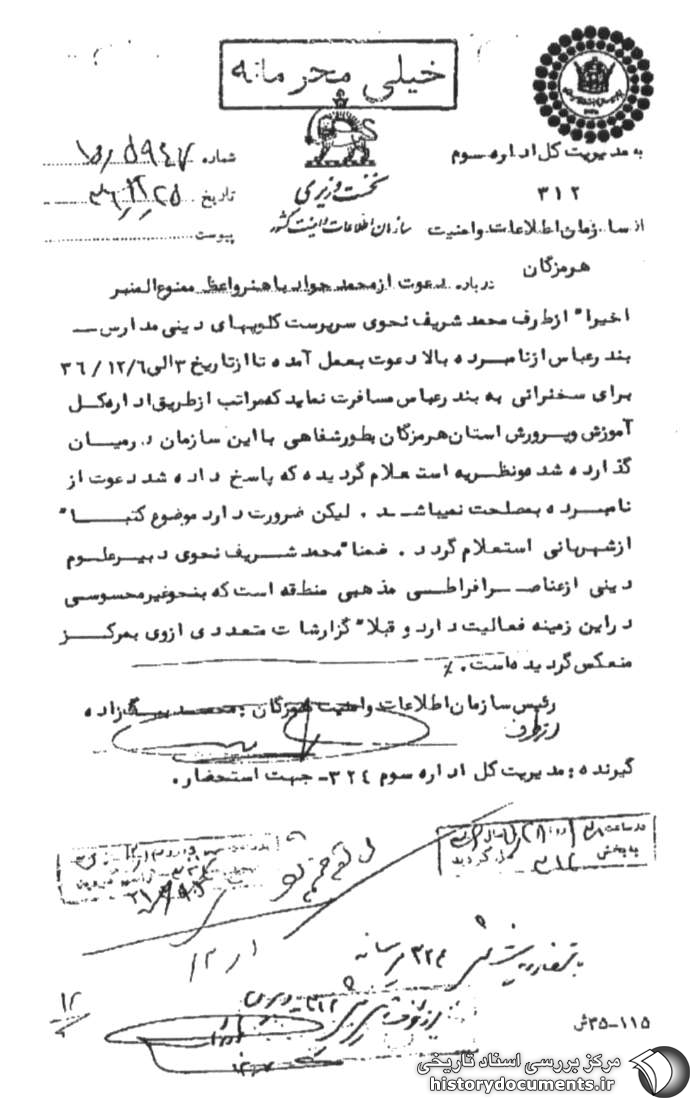 خیلی محرمانه
به مدیریت کل اداره سوم
۳۱۲
از سازمان اطلاعات وامنیت
هرمزگان
نخست وزیری
سازمان اطلاعات و امنیت کشور
شماره ۱۵/۵۹۴۷
تاریخ
پیوست
درباره دعوت ازمحمد جواد باهنرواعظ ممنوع المنبر
اخیرا" ازطرف محمد شریف نحوی سرپرست کلوپهای دینی مدارس
بندرعباس ازنامبرده بالا دعوت بعمل آمده تاازتاریخ ۳الی۳٦/۱۲/٦
برای سخنرانی به بندرعباس مسافرت نماید که مراتب ازطریق اداره کل
آموزش وپرورش استان هرمزگان بطورشفاهی بااین سازمان درمیان
گذارده شدونظریه استعلام گردیده که پاسخ داده شد دعوت از
نامبرده بمصلحت نمیباشد . لیکن ضرورت دارد موضوع کتبا"
ازشهربانی استعلام گردد . ضمنا"محمد شریف نحوی دبیرعلوم
دینی ازعناصرافراطی مذهبی منطقه است که بنحوغیرمحسوسی
دراین زمینه فعالیت دارد و قبلا"گزارشات متعددی ازوی بمرکز
منعکس گردیده است . ٪
رئیس سازمان اطلاعات وامنیت هرمزگان : محمد بیگ زاده
از طرف
گیرنده : مدیریت کل اداره سوم ۳۲٤- جهت استحضار .
در ساعت
به بخش ۳۱۲ گردید
۳۲٤
۱۲
۱۱۵-۳۵ش
مرکز بررسی اسناد تاریخی
historydocuments.ir